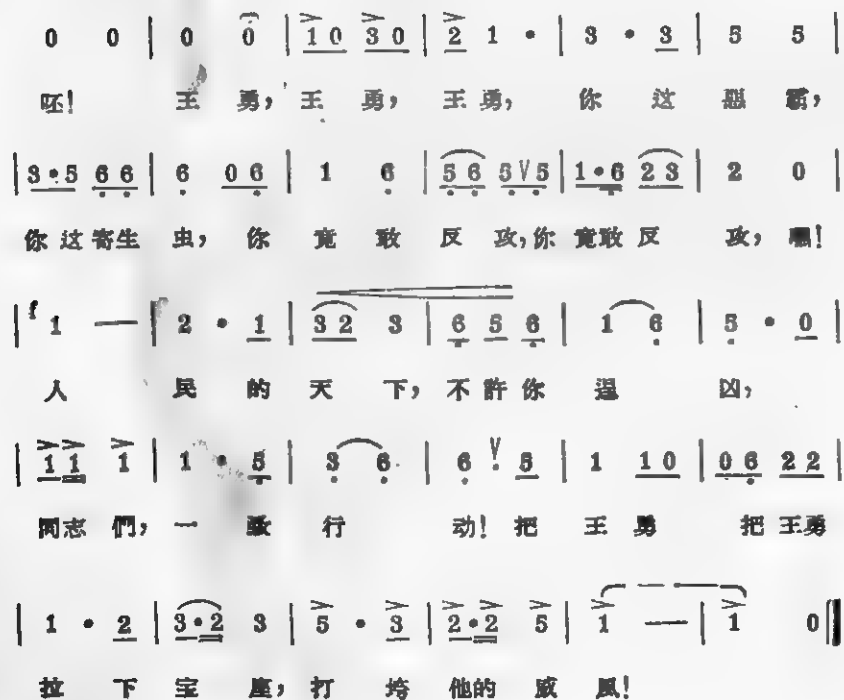 0 0 | 0 0 | 1 0 3 0 | 2 1 • | 3 • 3 | 5 5 |
呸! 王 勇, 王 勇, 王 勇, 你 这 恶 霸,
| 3 • 5 6 6 | 6 0 6 | 1 6 | 5 6 5 V 5 | 1 • 6 2 3 | 2 0 |
你 这 寄生 虫, 你 竟 敢 反 攻, 你 竟敢 反 攻, 嘿!
| f 1 — | 2 • 1 | 3 2 3 | 6 5 6 | 1 6 | 5 • 0 |
人 民 的 天 下, 不 許 你 逞 凶,
| 1 1 1 | 1 • 5 | 3 6 | 6 V 5 | 1 1 0 | 0 6 2 2 |
同志 們, 一 致 行 动! 把 王 勇 把 王勇
| 1 • 2 | 3 • 2 3 | 5 • 3 | 2 • 2 5 | 1 — | 1 0 ‖
拉 下 宝 座, 打 垮 他的 威 風!